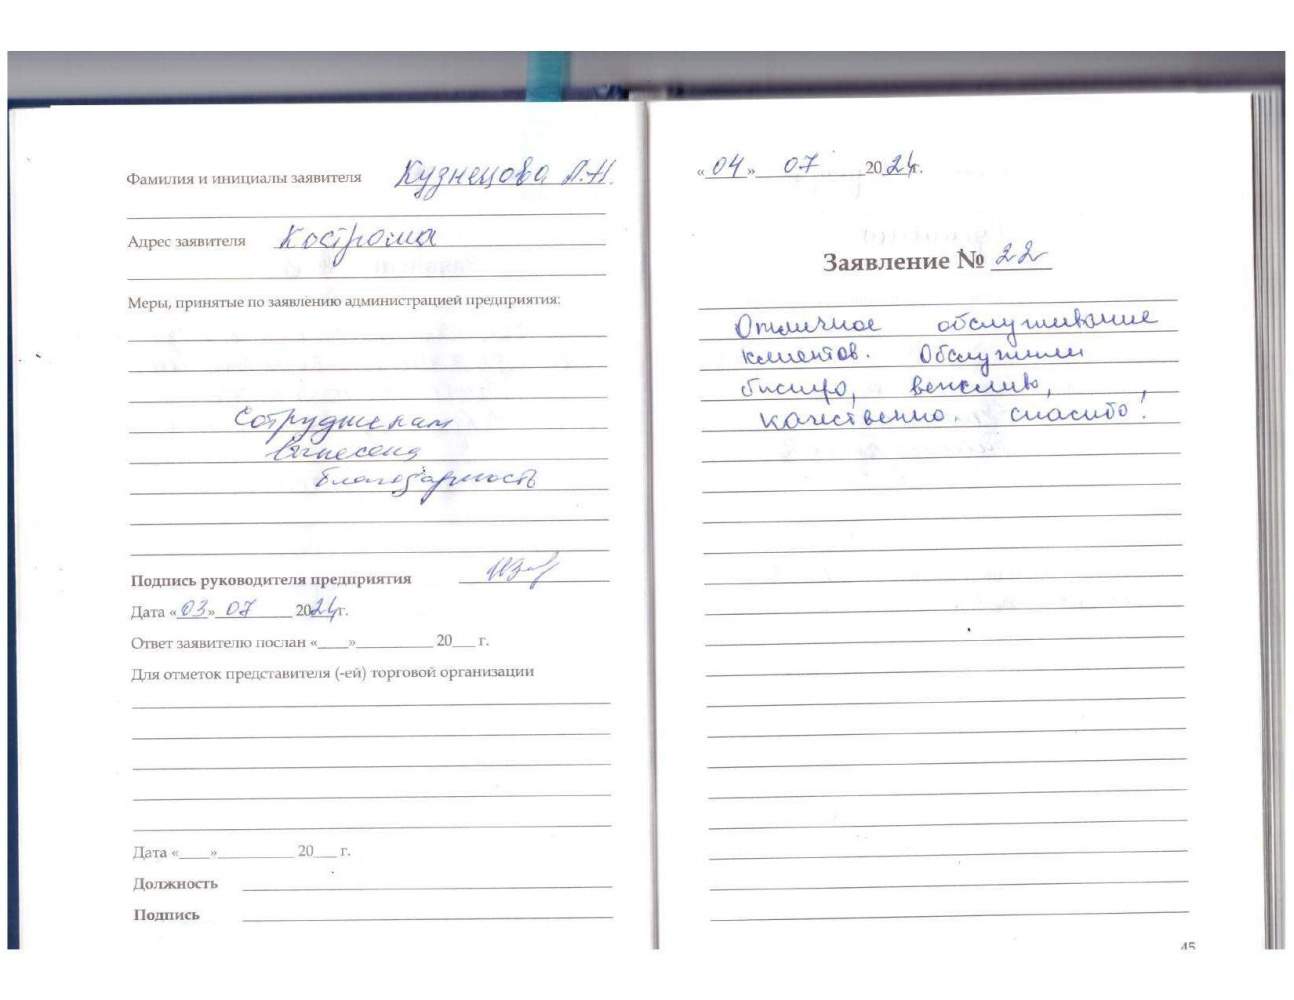 Фамилия и инициалы заявителя Кузнецова Л.Н.
Адрес заявителя Кострома
Меры, принятые по заявлению администрацией предприятия:
Сотрудникам
вынесена
благодарность
Подпись руководителя предприятия
Дата «03» 07 2024г.
Ответ заявителю послан «____»__________ 20___ г.
Для отметок представителя (-ей) торговой организации
Дата «____»__________ 20___ г.
Должность
Подпись
«04» 07 2024г.
Заявление № 22
Отличное обслуживание
клиентов. Обслужили
быстро, вежливо,
качественно. спасибо!
45